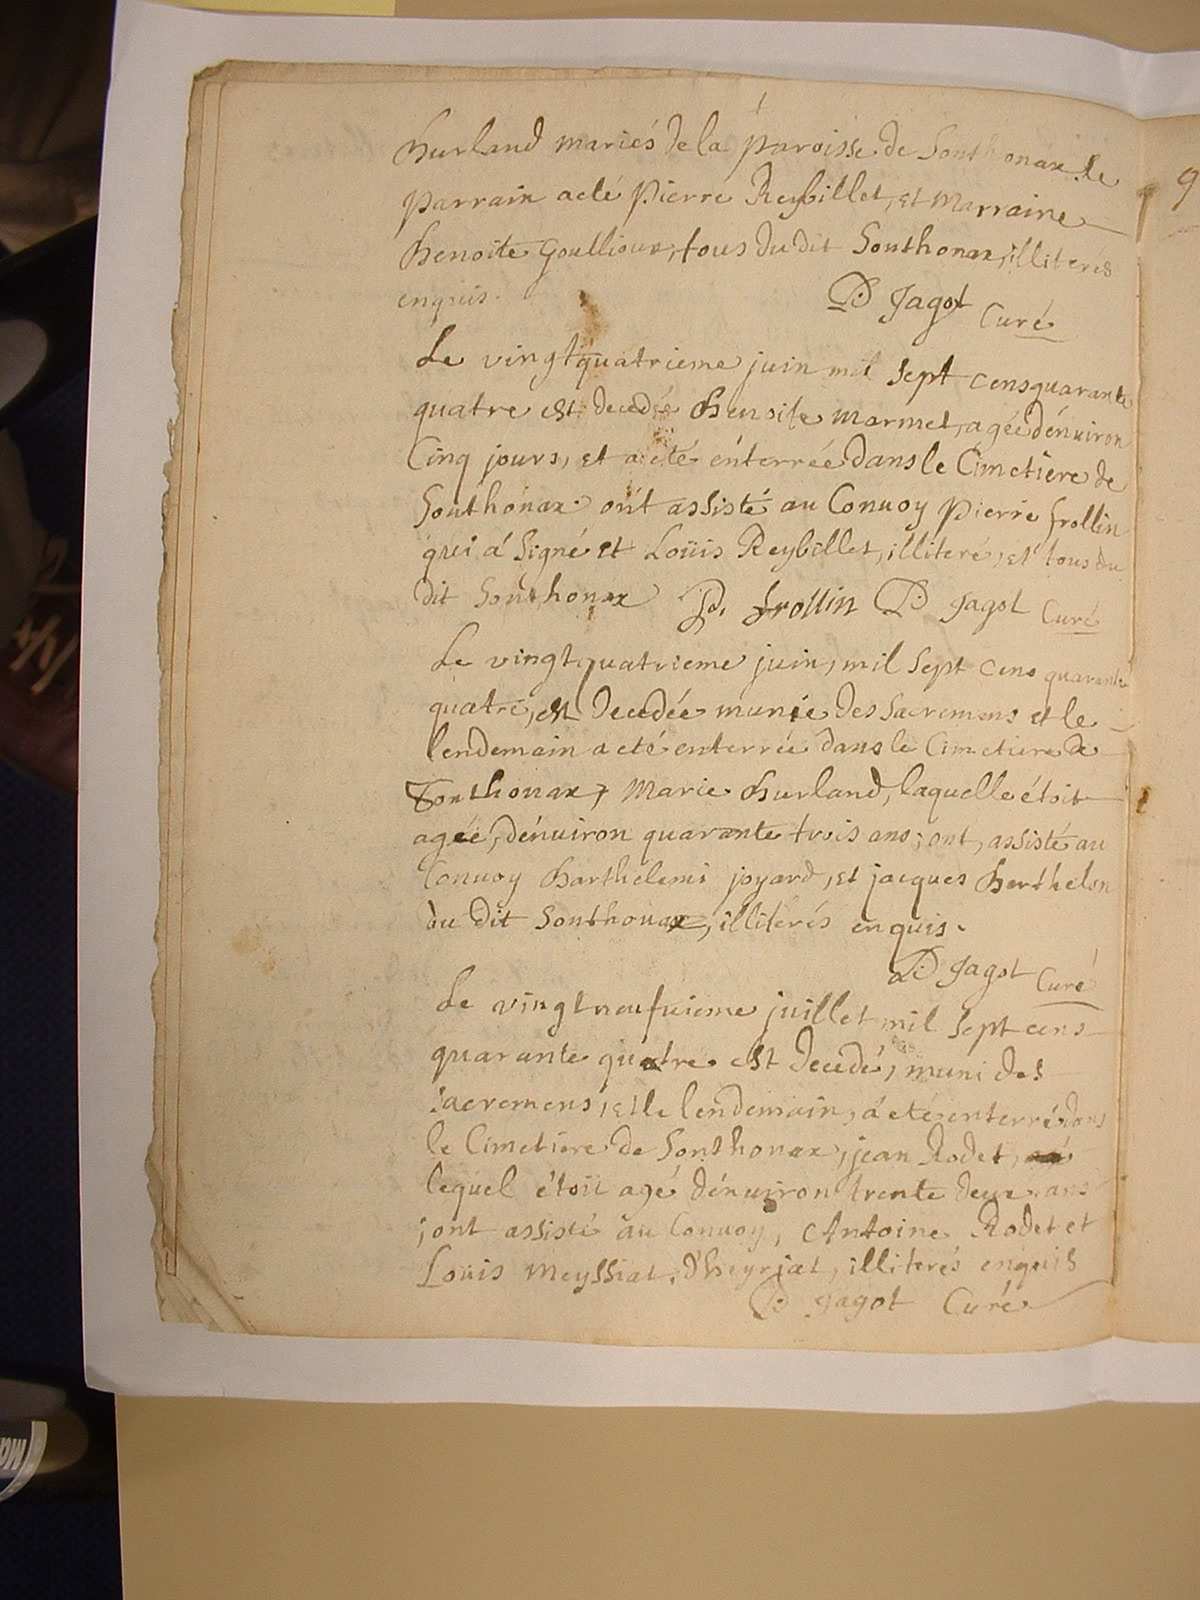 Burland mariés de la paroisse de Sonthonax. le
parrain a eté Pierre Reybillet, et Marraine
Benoite Goullioux, tous du dit Sonthonax, illiterés
enquis.
D. Jagot Curé
Le vingtquatrieme juin mil sept cens quarante
quatre est decedée Benoite Marmet, agée dénuiron
Cinq jours, et a eté énterrée dans le Cimetiere de
Sonthonax. ont assisté au Conuoy Pierre frollin
qui á signé et Loüis Reybillet, illiteré, et tous du
dit Sonthonax P. frollin D. Jagot Curé
Le vingtquatrieme juin, mil sept cens quarante
quatre, est decedée munie des sacremens et le
lendemain a eté enterrée dans le Cimetiere de
Sonthonax, Marie Burland, laquelle étoit
agée, dénuiron quarante trois ans; ont, assisté au
Conuoy Barthelemi joyard, et jacques Berthelon
du dit Sonthonax, illitérés enquis.
D. Jagot Curé
Le vingtneufuieme juillet mil sept cens
quarante quatre est decedé, muni des
sacremens, et le lendemain, á eté enterré dans
le Cimetiere de Sonthonax, jean Rodet,
lequel étoit agé dénuiron trente deux ans
; ont assisté au Conuoy, Antoine Rodet et
Loüis Meyssiat, d'heyriat, illiterés enquis
D. Jagot Curé
9